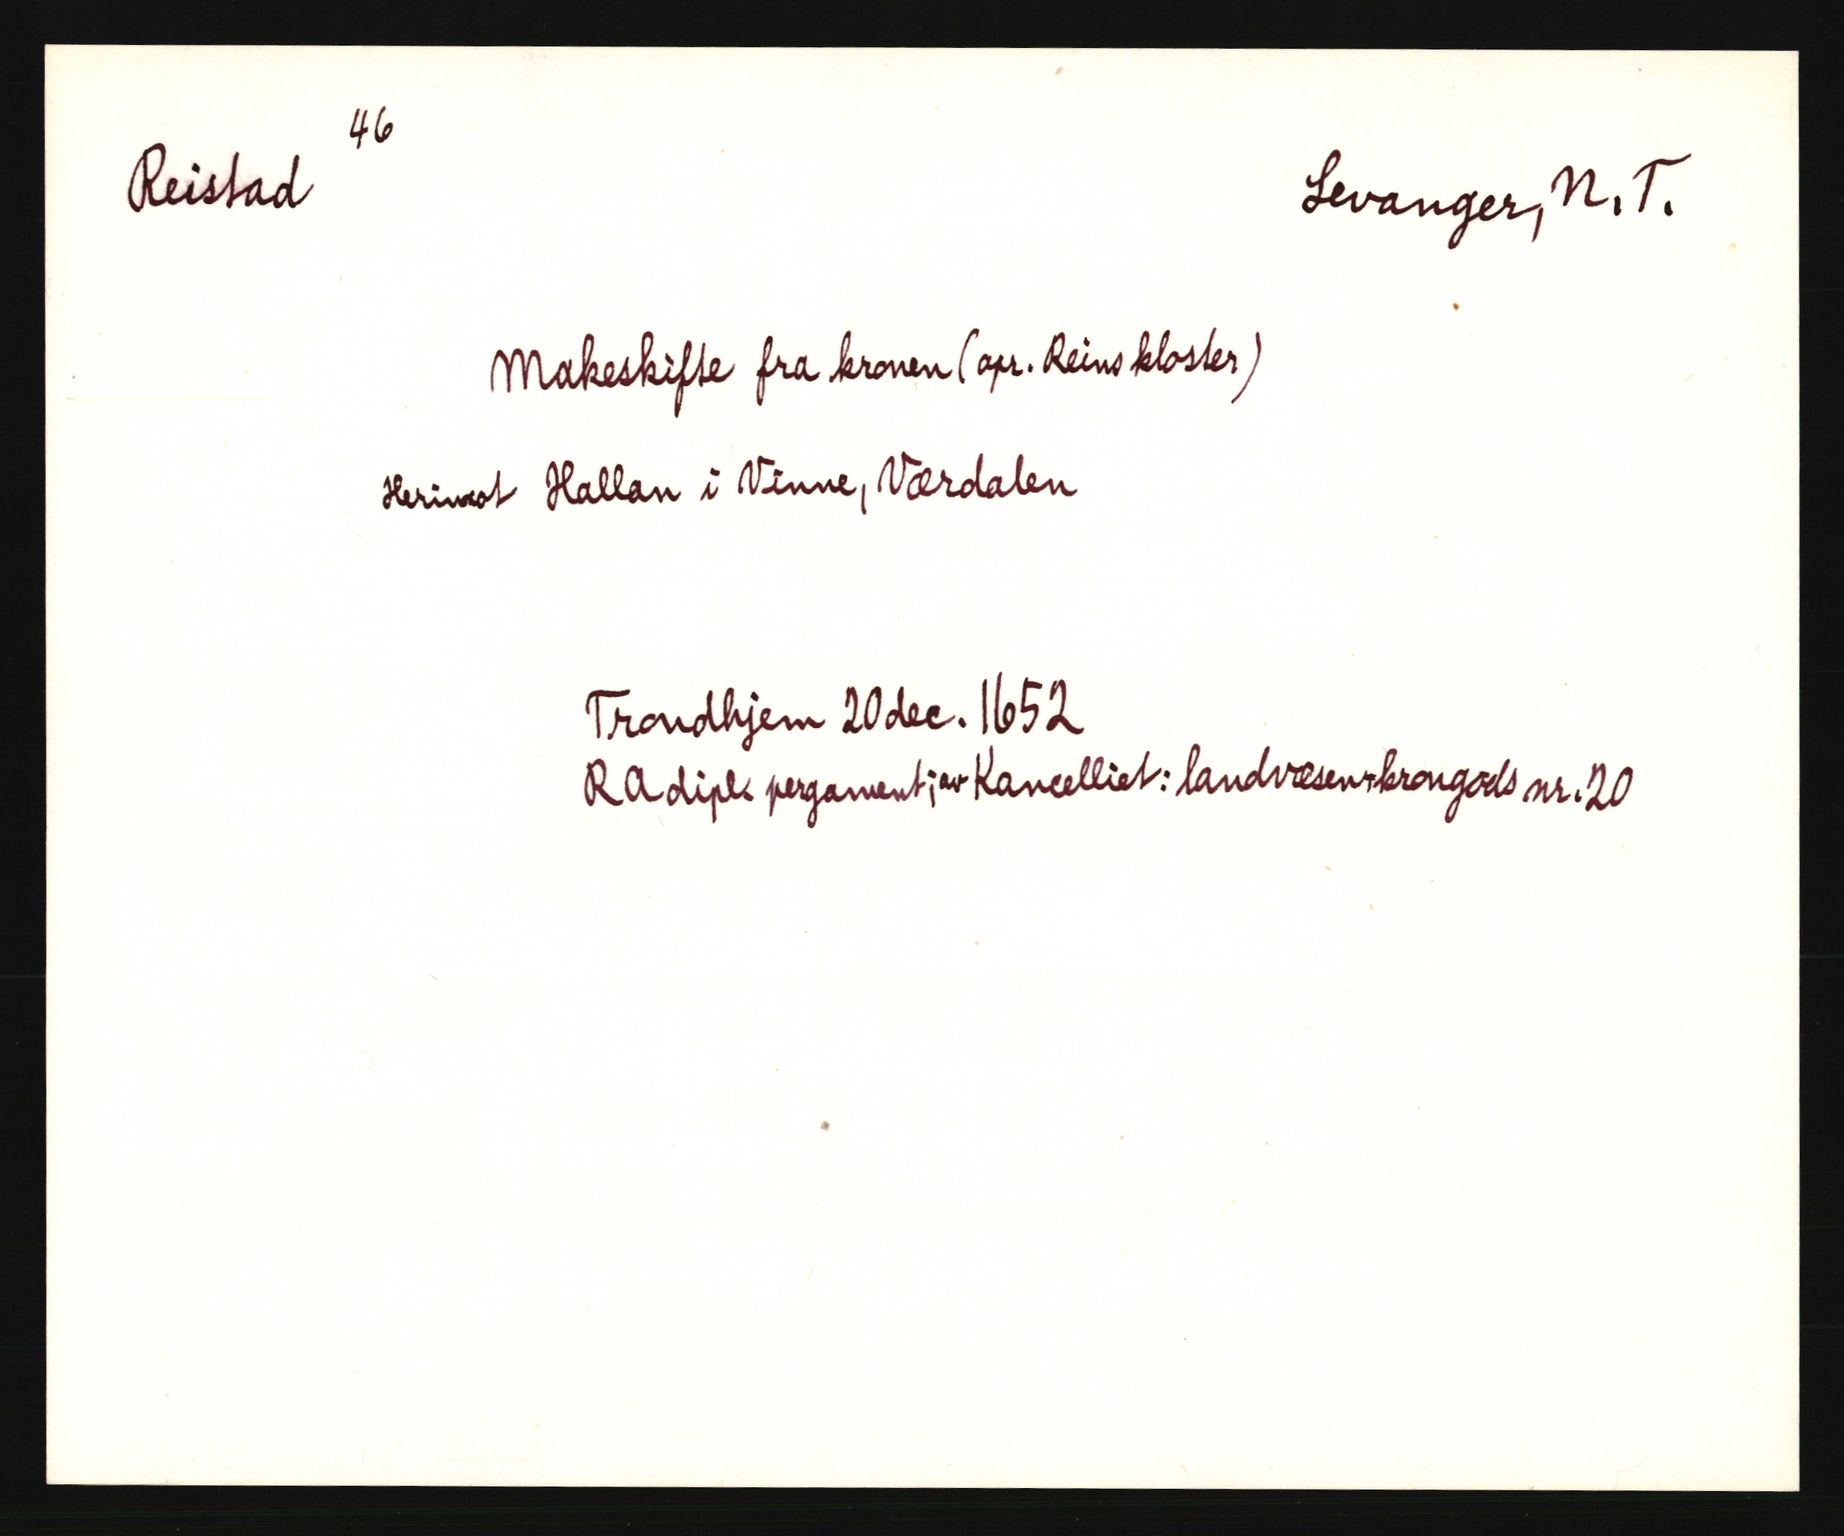 Reistad 46 Levanger, N.T.
Makeskifte fra kronen (opr. Reins kloster)
Herimot Hallan i Vinne, Værdalen
Trondhjem 20 dec. 1652
RA dipl. pergament; av Kancelliet: landvæsen + krongods nr. 20